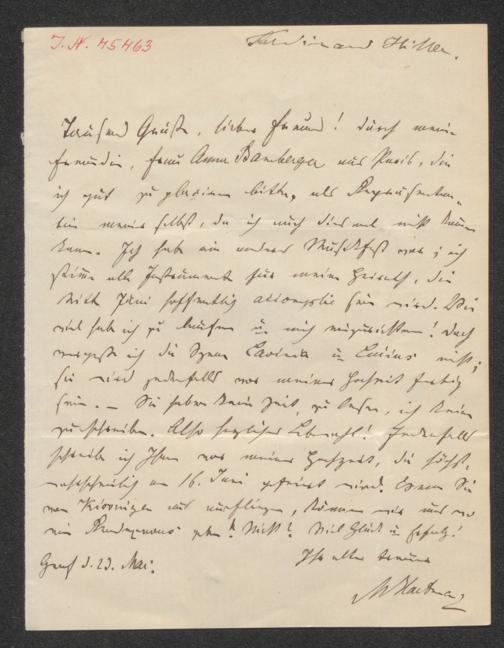 I. N. 45463
Ferdinand Hiller.
Tausend Grüße, lieber Freund! durch meine
Freundin, Frau Anna Bamberger aus Paris, die
ich gut zu placiren bitte, als Repräsentan-
tin meiner selbst, da ich auch diesmal nicht kommen
kann. Ich habe ein anderes Musikfest vor; ich
stimme alle Instrumente für meine Heirath, die
Mitte Juni hoffentlich
viel hab ich zu laufen u. mich
vergesse ich die Scene Lavinia u. nicht;
sie wird jedenfalls vor meiner Hochzeit fertig
sein. – Sie haben keine Zeit, zu lesen, ich keine
zu schreiben. Also herzliches Lebewohl! Jedenfalls
schreibe ich Ihnen vor meiner Hochzeit, die höchst-
wahrscheinlich am 16. Juni gefeiert wird. Wenn Sie
von aus können wir uns ja
ein Rendezvous geben! Nicht? Viel Glück u. Erfolg!
Ihr alter treuer
Genf d. 23. Mai.
M Hartmann